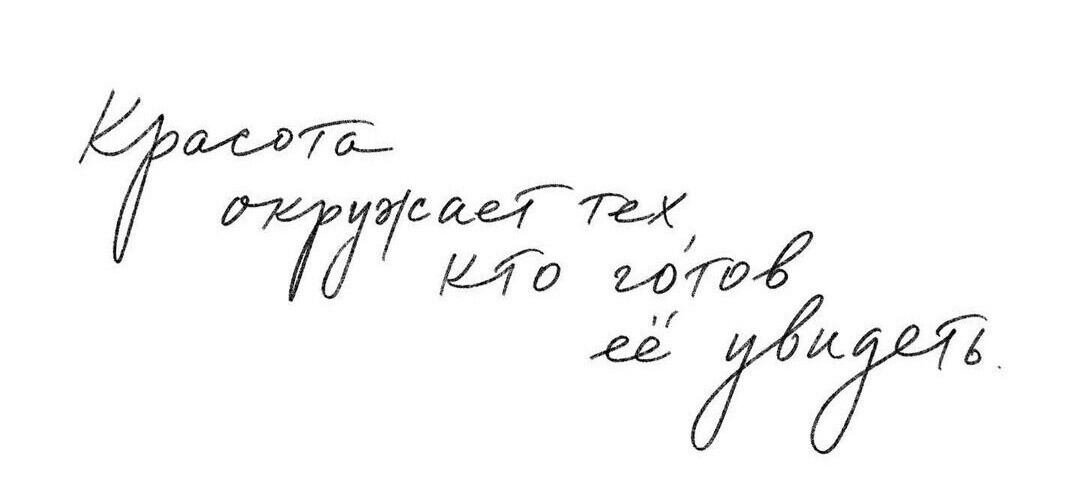 Красота
окружает тех,
кто готов
её увидеть.